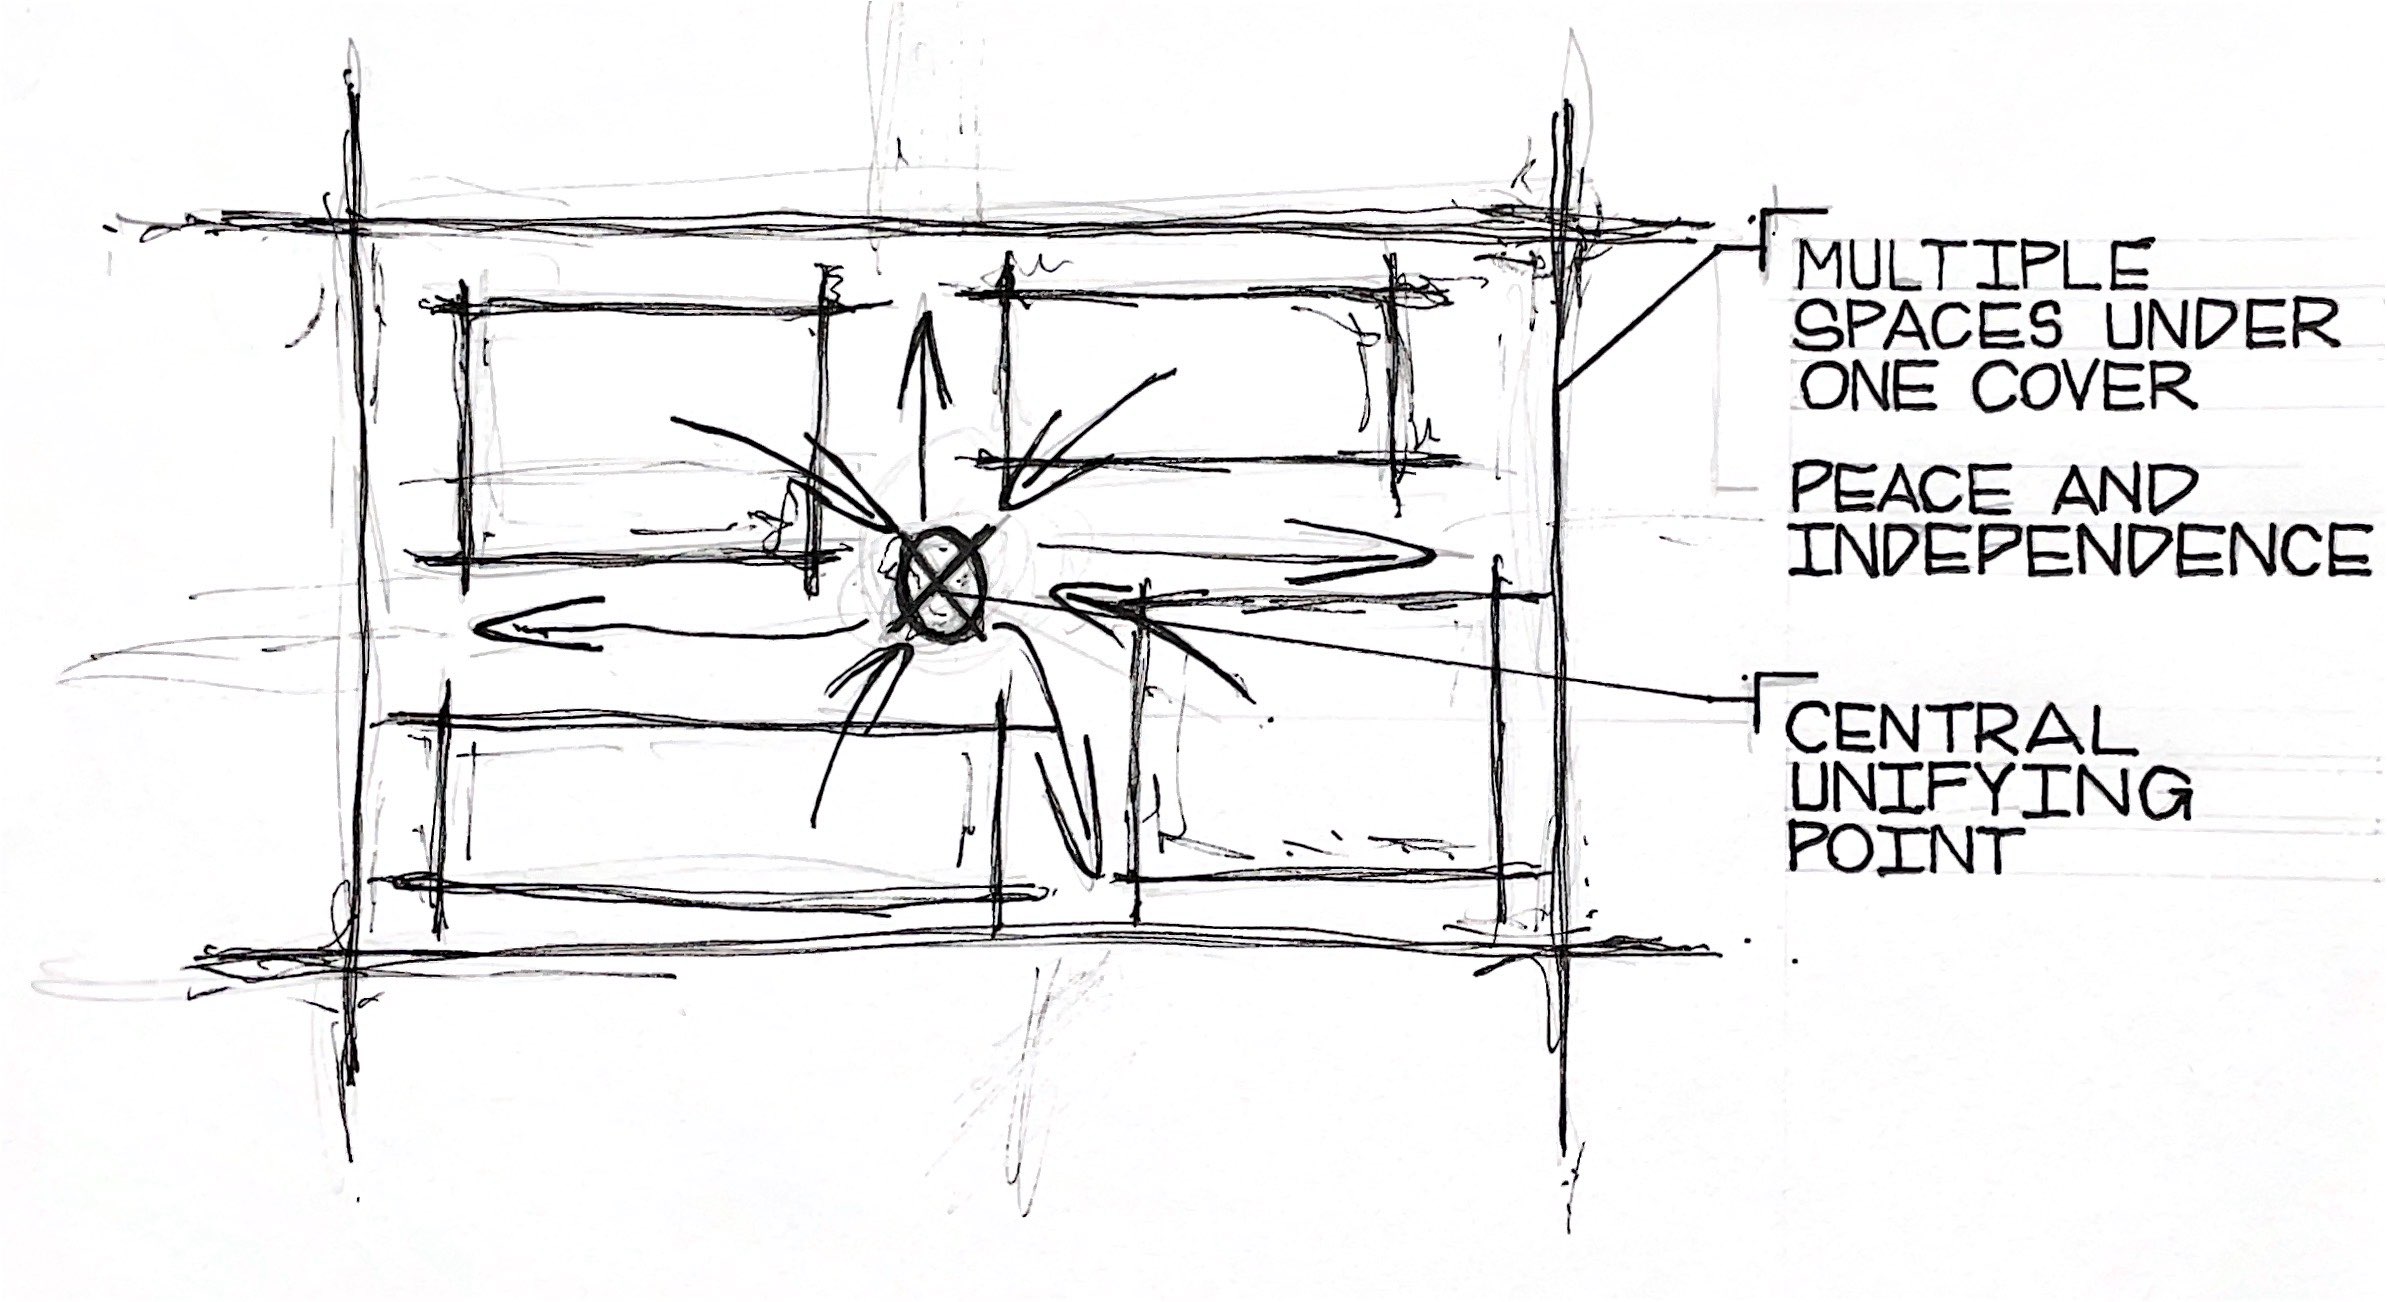 MULTIPLE
SPACES UNDER
ONE COVER
PEACE AND
INDEPENDENCE
CENTRAL
UNIFYING
POINT